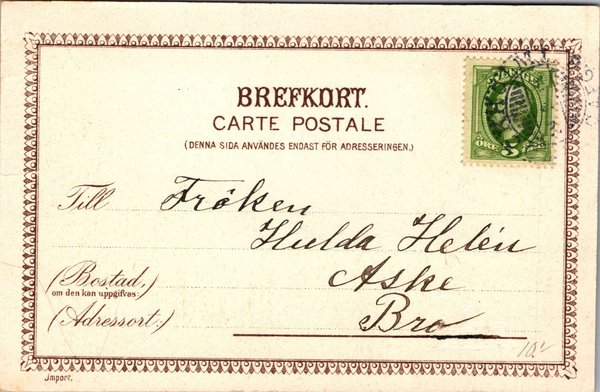 BREFKORT.
CARTE POSTALE
(DENNA SIDA ANVÄNDES ENDAST FÖR ADRESSERINGEN.)
ÖRE 5
Till Fröken
Hulda Helén
(Bostad,) Aske
om den kan uppgifvas:
(Adressort.) Bro
10:-
Import.